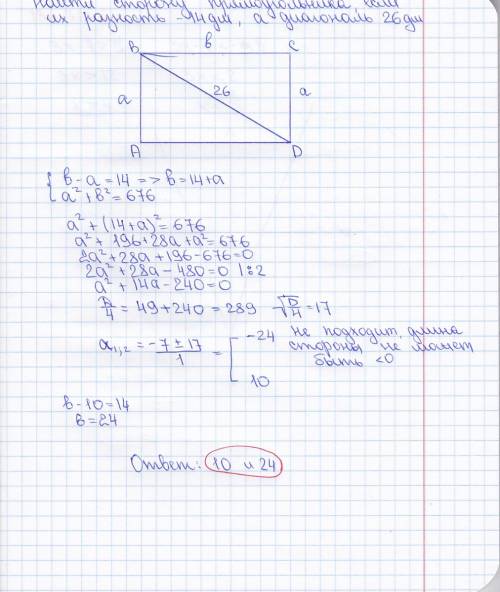 найти сторону прямоугольника, если
их разность -14дм, а диагональ 26дм
в
B C
a 26 a
A D
{ в-a=14 => в=14+a
a²+в²=676
a²+(14+a)²=676
a²+196+28a+a²=676
2a²+28a+196-676=0
2a²+28a-480=0 |:2
a²+14a-240=0
D/4=49+240=289 √D/4=17
a₁,₂=(-7±17)/1=[ -24 не подходит, длина
стороны не может
быть <0
10
в-10=14
в=24
Ответ: 10 и 24